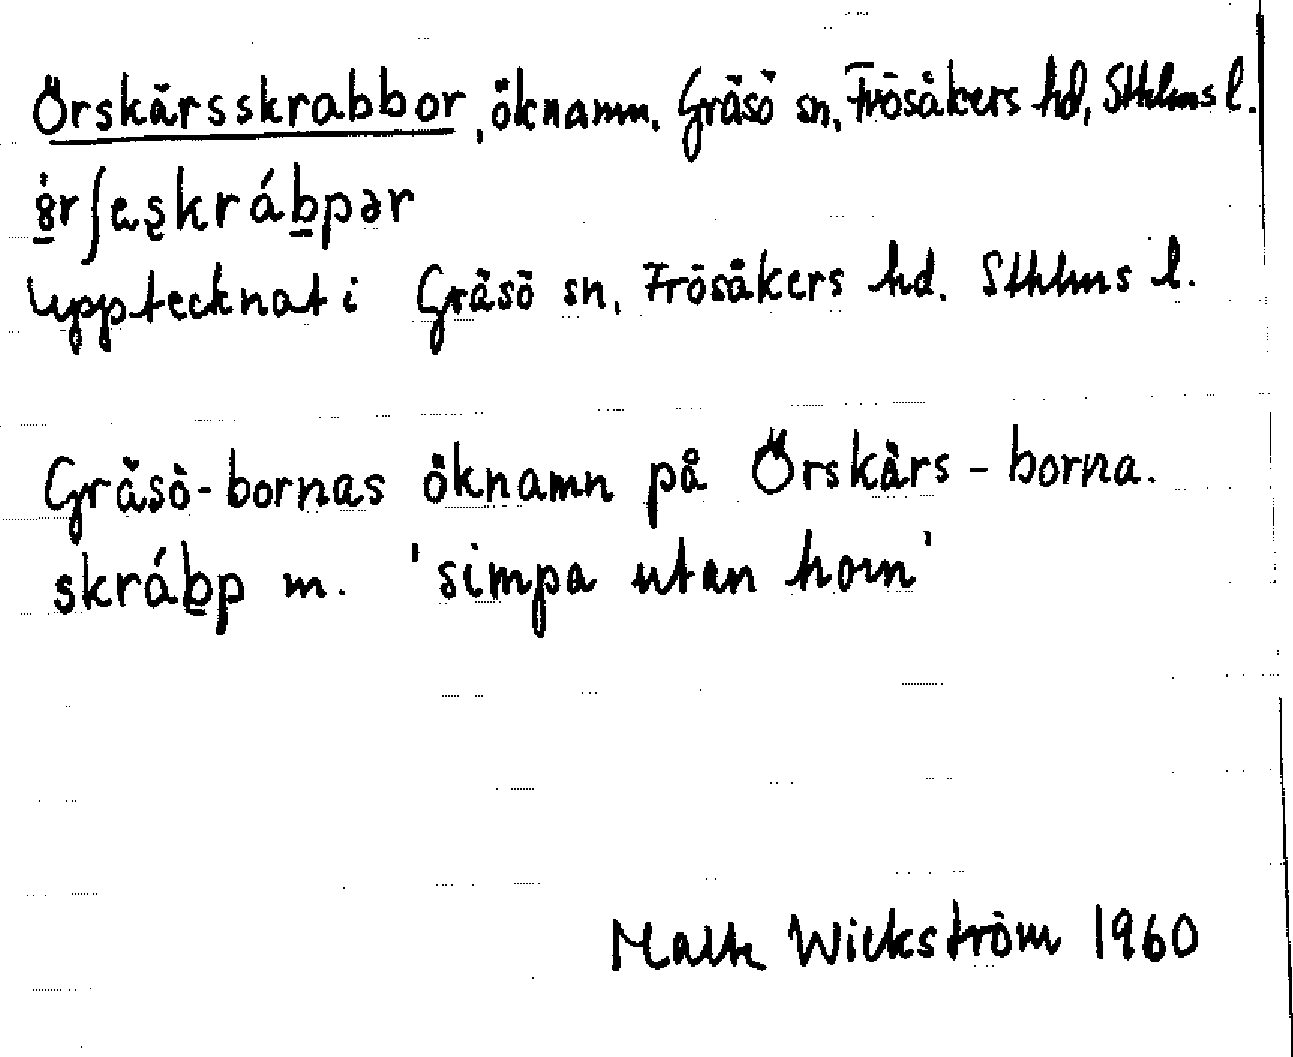 Örskärsskrabbor, öknamn. Gräsö sn, Frösåkers hd, Sthlms l.
ȣ̀rʃɐʂkráb̠pər
Upptecknat i Gräsö sn, Frösåkers hd. Sthlms l.
Gräsö-bornas öknamn på Örskärs-borna.
skráb̠p m. 'simpa utan horn'
Malte Wickström 1960